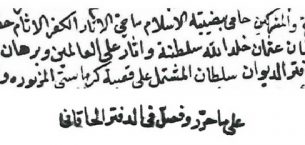 والمشركين حامى بيضة الاسلام ماحى الآثار الكفر الاثام
عثمان خلد الله سلطنته واثار على العالمين وبرهان
دفتر الديوان سلطان المشتمل على قصبة المزبوره
على ما حرر وفصل فى الدفتر الخاقانى